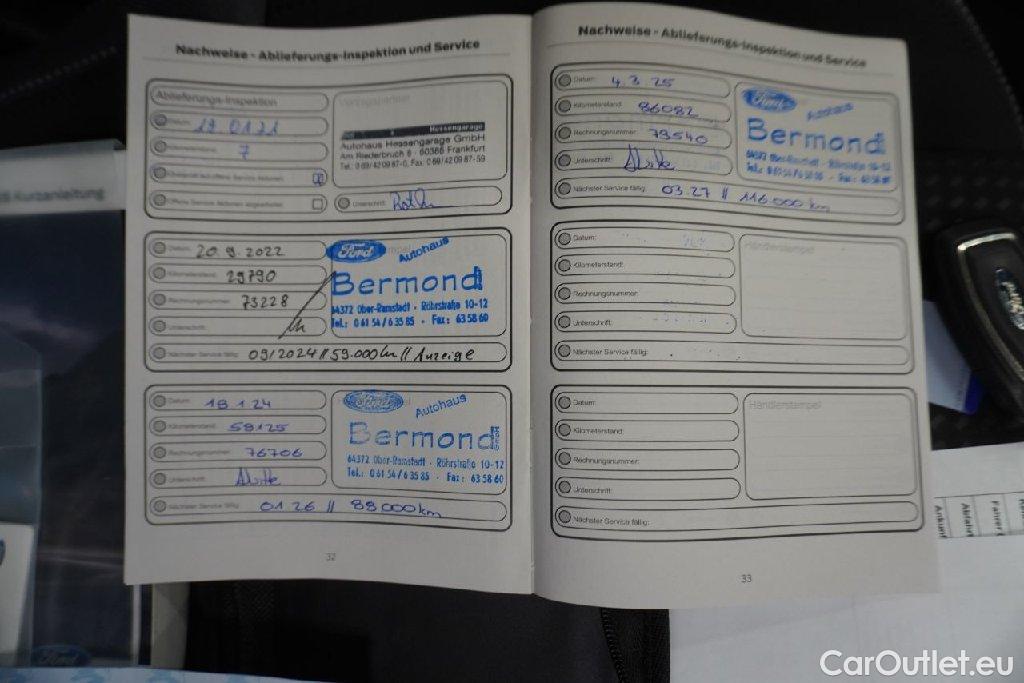 Nachweise - Ablieferungs-Inspektion und Service
Ablieferungs-Inspektion
19.01.21
7
Offene Service Aktionen abgearbeitet:
Vertragspartner
Hessengarage
Autohaus Hessengarage GmbH
Am Riederbruch 8 · 60386 Frankfurt
Unterschrift:
Datum: 20.9.2022
Kilometerstand: 29790
Rechnungsnummer: 73228
Unterschrift:
Nächster Service fällig: 09/2024 // 59.000 km // Anzeige
Ford Autohaus
Bermond GmbH
64372 Ober-Ramstadt · Röhrstraße 10-12
Tel.: 0 61 54 / 6 35 85 · Fax: 6 35 8 60
Datum: 18.1.24
Kilometerstand: 59125
Rechnungsnummer: 76706
Unterschrift:
Nächster Service fällig: 01.26 // 89000km
Autohaus
Bermond GmbH
64372 Ober-Ramstadt · Röhrstraße 10-12
Tel.: 0 61 54 / 6 35 85 · Fax: 6 35 8 60
32
Nachweise - Ablieferungs-Inspektion und Service
Datum: 4.3.25
Kilometerstand: 86082
Rechnungsnummer: 79540
Unterschrift:
Nächster Service fällig: 03.27 // 116000km
Ford Autohaus
Bermond
64372 Ober-Ramstadt · Röhrstraße 10-12
Datum:
Kilometerstand:
Rechnungsnummer:
Unterschrift:
Nächster Service fällig:
Händlerstempel
Datum:
Kilometerstand:
Rechnungsnummer:
Unterschrift:
Nächster Service fällig:
Händlerstempel
33
Kurzanleitung
Ford
Ankunft
Abfahrt
Fahrer
CarOutlet.eu